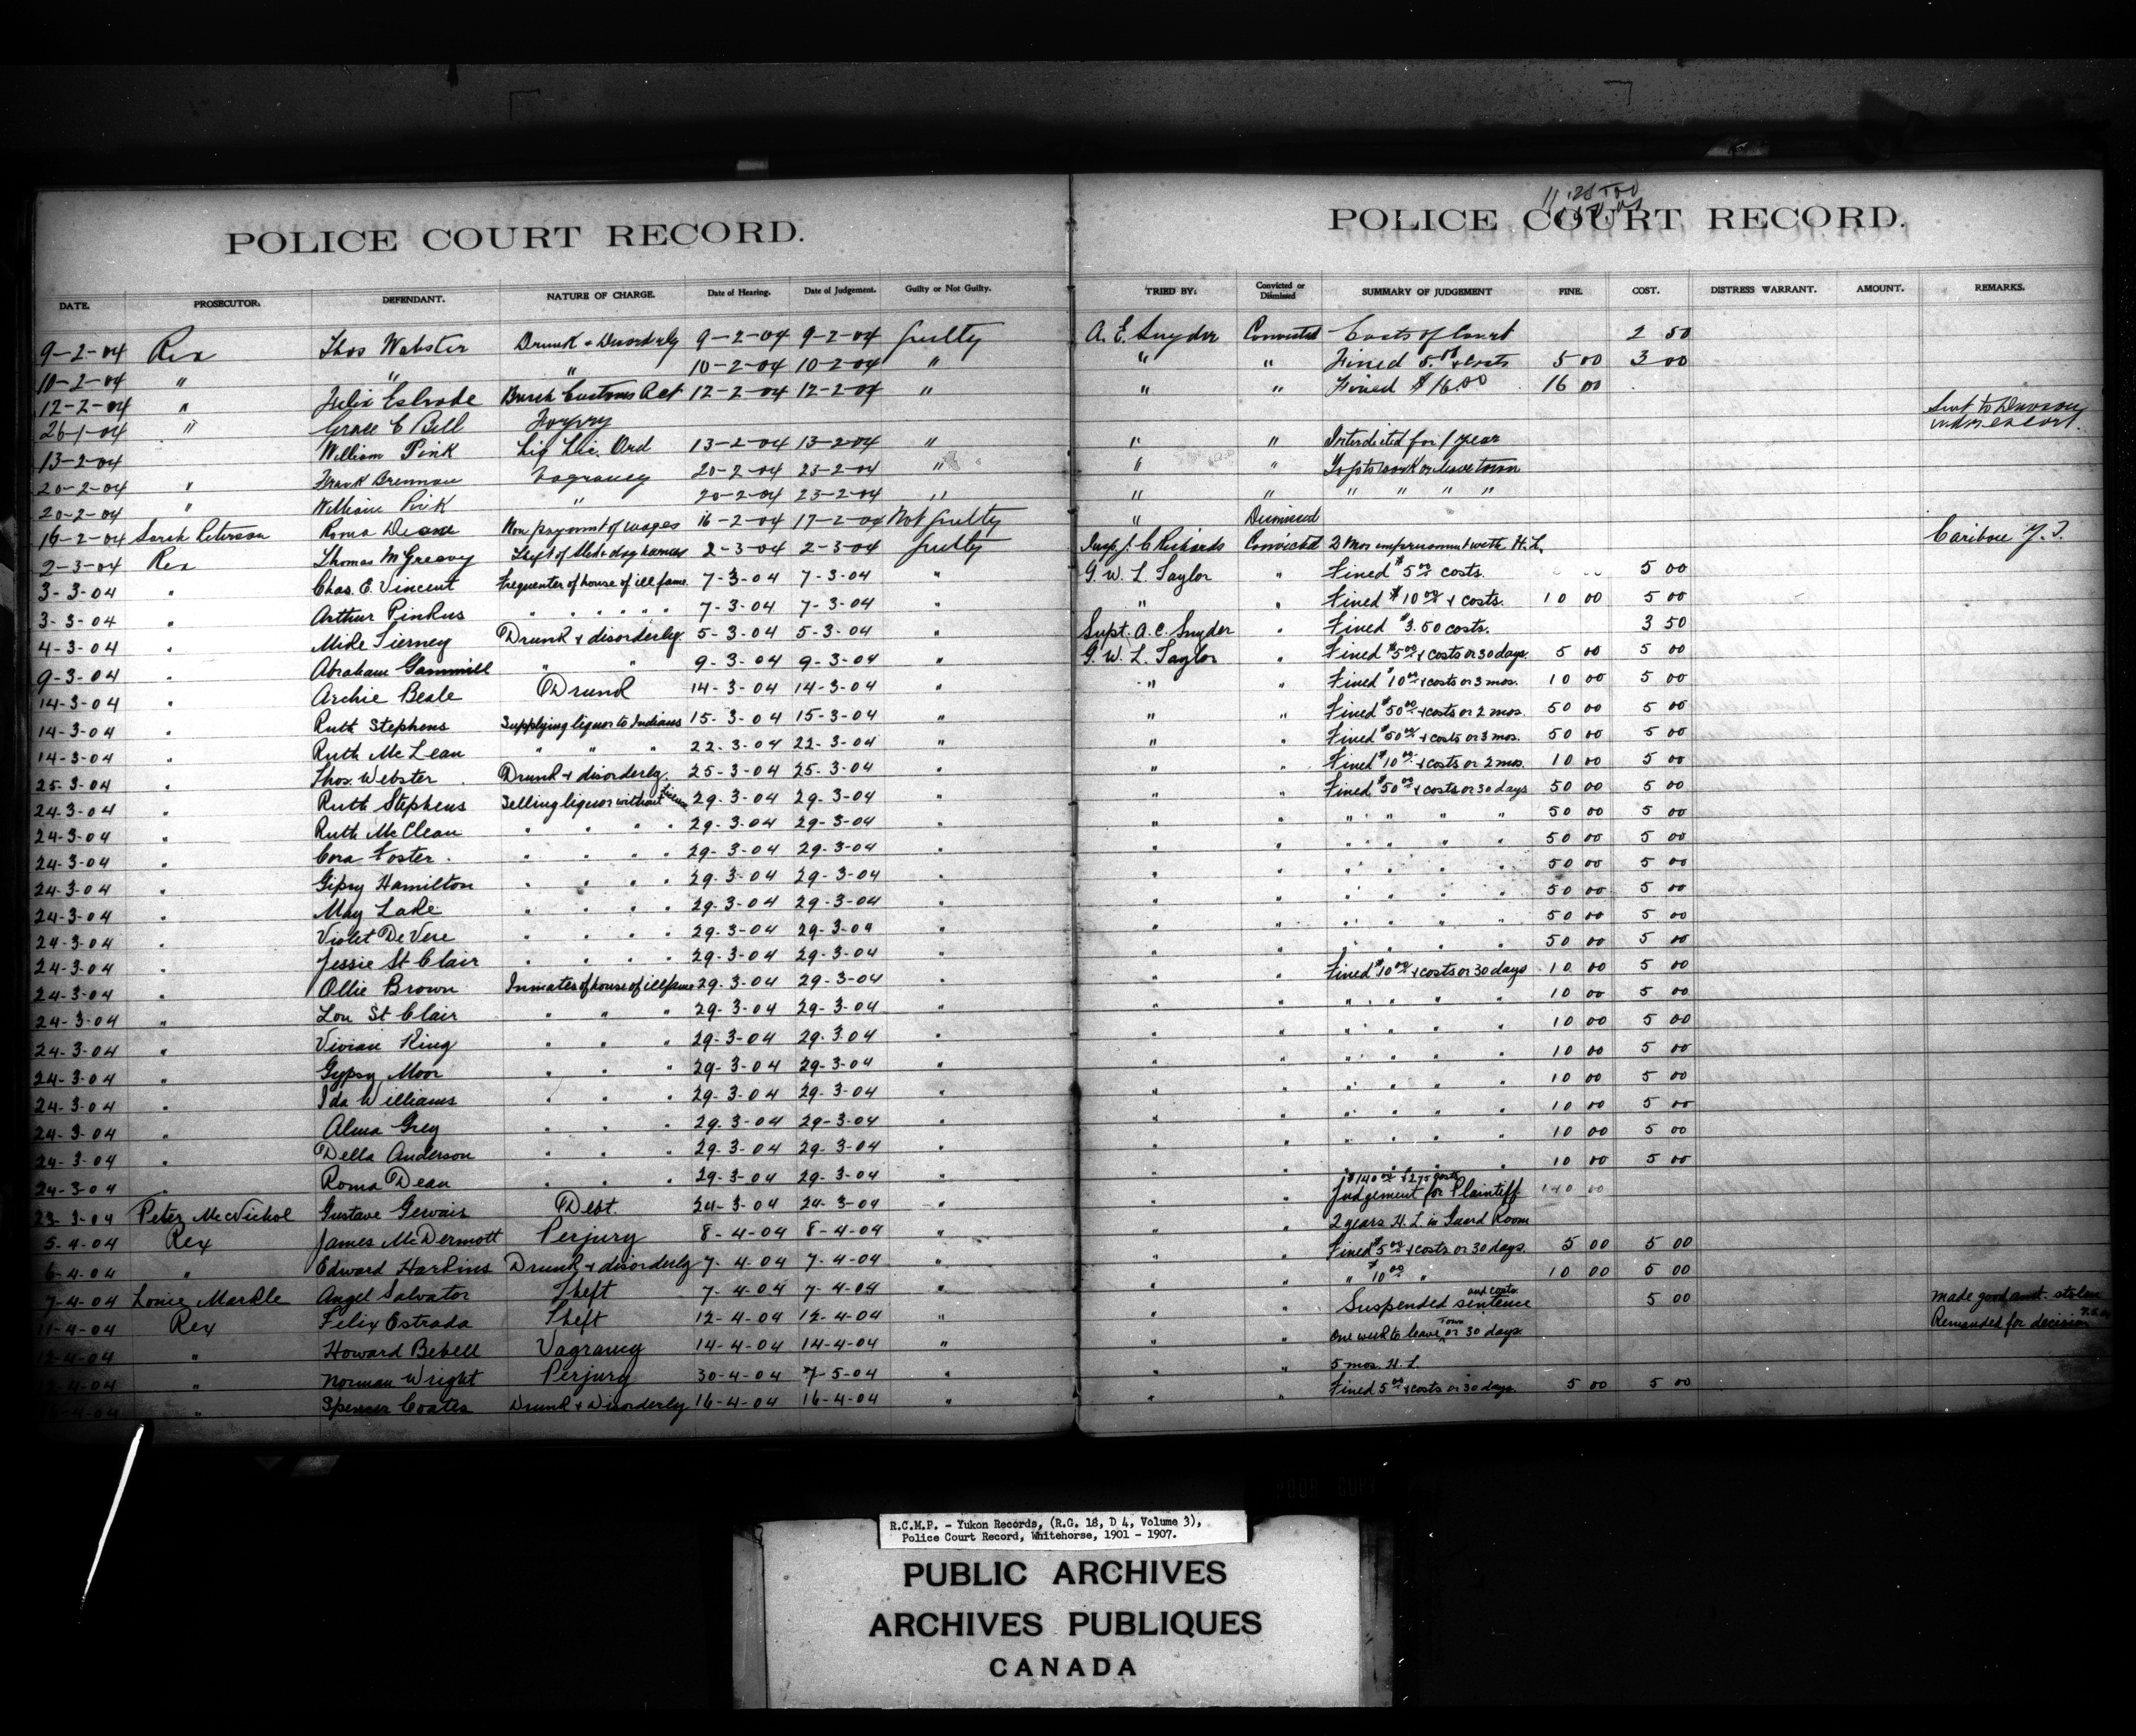 POLICE COURT RECORD.
POLICE COURT RECORD.
DATE. PROSECUTOR. DEFENDANT. NATURE OF CHARGE. Date of Hearing. Date of Judgement. Guilty or Not Guilty. TRIED BY: Convicted or Dismissed SUMMARY OF JUDGEMENT FINE. COST. DISTRESS WARRANT. AMOUNT. REMARKS.
9-2-04 Rex Thos Webster Drunk & Disorderly 9-2-04 9-2-04 Guilty A. E. Snyder Convicted Costs of Court 2 50
10-2-04 " " " 10-2-04 10-2-04 " " " Fined 5.00 & Costs 5 00 3 00
12-2-04 " Felix Estrade Breach Customs Act 12-2-04 12-2-04 " " " Fined $16.00 16 00
26-1-04 " Grace E Bell Forgery Sent to Dawson under escort.
13-2-04 William Pink Liq Lic. Ord 13-2-04 13-2-04 " " " Interdicted for 1 year
20-2-04 " Frank Brennan Vagrancy 20-2-04 23-2-04 " " " To go to work or leave town
20-2-04 " William Pink " 20-2-04 23-2-04 " " " " " " "
16-2-04 Sarah Peterson Roma Deane Non payment of wages 16-2-04 17-2-04 Not Guilty " Dismissed
2-3-04 Rex Thomas McGreavy Theft of sled & dog harness 2-3-04 2-3-04 Guilty Insp. J. C. Richards Convicted 2 Mos imprisonment with H.L. Caribou Y.T.
3-3-04 " Chas. E. Vincent Frequenter of house of ill fame. 7-3-04 7-3-04 " G. W. L. Taylor " Fined $5.00 costs. 5 00
3-3-04 " Arthur Pinkus " " " " " " 7-3-04 7-3-04 " " " Fined $10.00 & costs. 10 00 5 00
4-3-04 " Mike Tierney Drunk & disorderly. 5-3-04 5-3-04 " Supt. A. E. Snyder " Fined $3.50 costs. 3 50
9-3-04 " Abraham Gammill " " 9-3-04 9-3-04 " G. W. L. Taylor " Fined $5.00 & costs or 30 days. 5 00 5 00
14-3-04 " Archie Beale Drunk 14-3-04 14-3-04 " " " Fined $10.00 & costs or 3 mos. 10 00 5 00
14-3-04 " Ruth Stephens Supplying liquor to Indians 15-3-04 15-3-04 " " " Fined $50.00 & costs or 2 mos. 50 00 5 00
14-3-04 " Ruth McLean " " " 22-3-04 22-3-04 " " " Fined $50.00 & costs or 3 mos. 50 00 5 00
25-3-04 " Thos. Webster Drunk & disorderly. 25-3-04 25-3-04 " " " Fined $10.00 & costs or 2 mos. 10 00 5 00
24-3-04 " Ruth Stephens Selling liquor without license 29-3-04 29-3-04 " " " Fined $50.00 & costs or 30 days 50 00 5 00
24-3-04 " Ruth McClean " " " " 29-3-04 29-3-04 " " " " " " " 50 00 5 00
24-3-04 " Cora Foster. " " " " 29-3-04 29-3-04 " " " " " " " 50 00 5 00
24-3-04 " Gipsy Hamilton " " " " 29-3-04 29-3-04 " " " " " " " 50 00 5 00
24-3-04 " May Lake " " " " 29-3-04 29-3-04 " " " " " " " 50 00 5 00
24-3-04 " Violet DeVere " " " " 29-3-04 29-3-04 " " " " " " " 50 00 5 00
24-3-04 " Jessie St Clair " " " " 29-3-04 29-3-04 " " " " " " " 50 00 5 00
24-3-04 " Ollie Brown Inmates of house of ill fame 29-3-04 29-3-04 " " " Fined $10.00 & costs or 30 days 10 00 5 00
24-3-04 " Lou St Clair " " " 29-3-04 29-3-04 " " " " " " " 10 00 5 00
24-3-04 " Vivian King " " " 29-3-04 29-3-04 " " " " " " " 10 00 5 00
24-3-04 " Gypsy Moor " " " 29-3-04 29-3-04 " " " " " " " 10 00 5 00
24-3-04 " Ida Williams " " " 29-3-04 29-3-04 " " " " " " " 10 00 5 00
24-3-04 " Alma Grey " " " 29-3-04 29-3-04 " " " " " " " 10 00 5 00
24-3-04 " Della Anderson " " " 29-3-04 29-3-04 " " " " " " " 10 00 5 00
24-3-04 " Roma Dean " " " 29-3-04 29-3-04 " " " " " " " 10 00 5 00
23-3-04 Peter McNichol Gustave Gervais Debt. 24-3-04 24-3-04 " " Judgement for Plaintiff $140.00 & 2.75 costs 140 00
5-4-04 Rex James McDermott Perjury 8-4-04 8-4-04 " " " 2 years H. L. in Guard Room
6-4-04 " Edward Harkins Drunk & disorderly 7-4-04 7-4-04 " " " Fined $5.00 & costs or 30 days. 5 00 5 00
7-4-04 Louie Markle Angel Salvator Theft 7-4-04 7-4-04 " " " " $10.00 " 10 00 5 00
11-4-04 Rex Felix Estrada Theft 12-4-04 12-4-04 " " " Suspended sentence and costs. 5 00 made good amt. stolen
12-4-04 " Howard Bebell Vagrancy 14-4-04 14-4-04 " " " One week to leave Town or 30 days. Remanded for decision
-4-04 " Norman Wright Perjury 30-4-04 7-5-04 " " " 5 mos. H. L.
-4-04 " Spencer Coates Drunk & Disorderly 16-4-04 16-4-04 " " " Fined 5.00 & costs or 30 days. 5 00 5 00
R.C.M.P. - Yukon Records, (R.G. 18, D 4, Volume 3),
Police Court Record, Whitehorse, 1901 - 1907.
PUBLIC ARCHIVES
ARCHIVES PUBLIQUES
CANADA